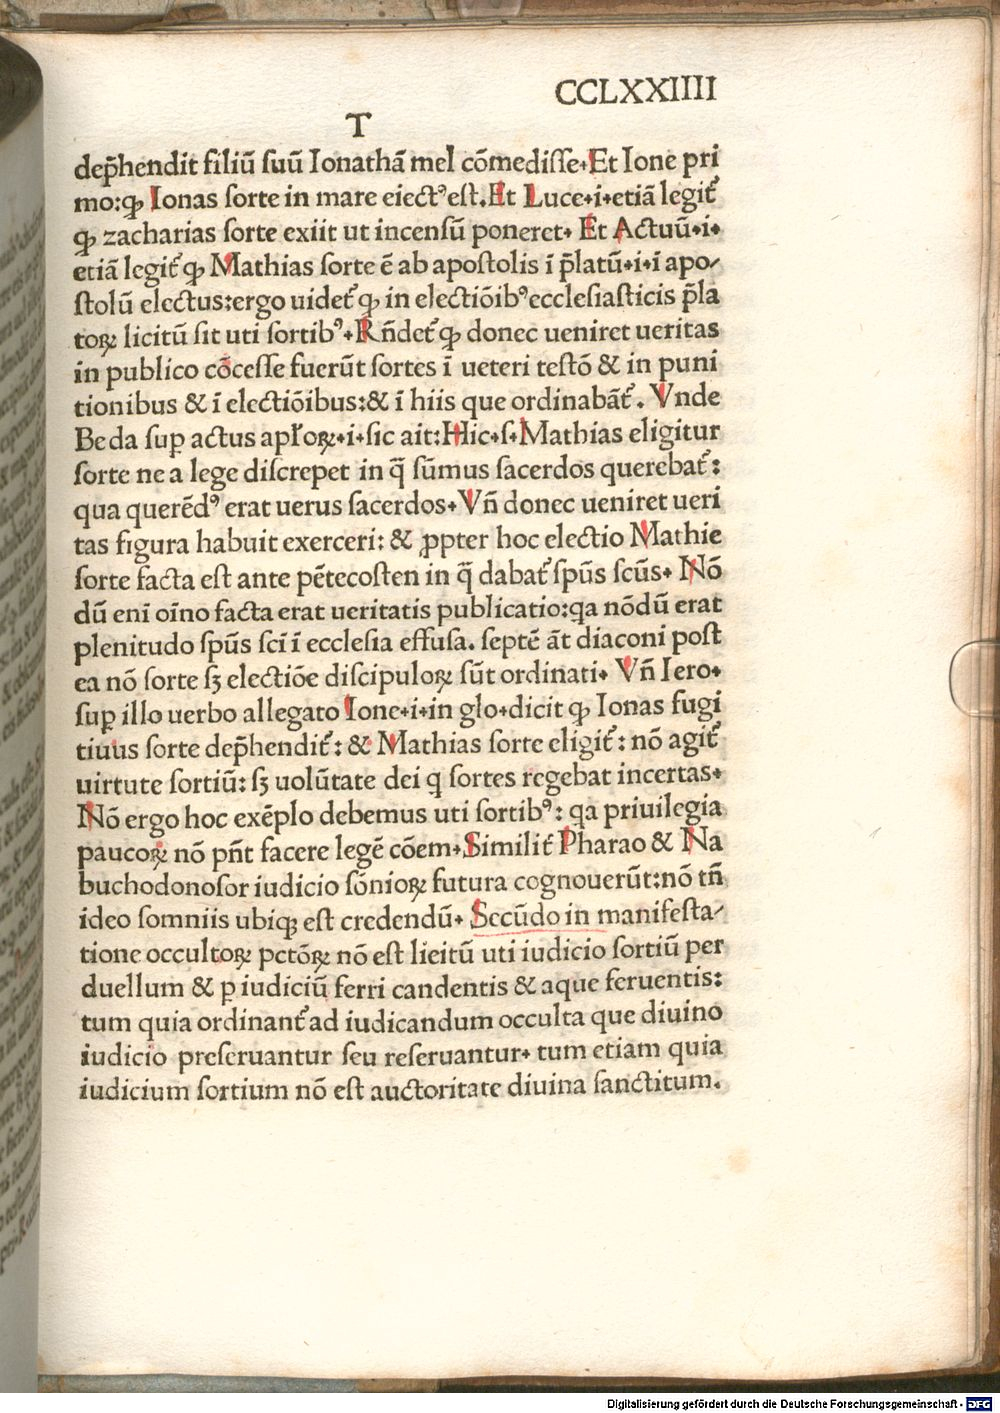 CCLXXIIII
T
dep̄hendit filiū ſuū Ionathā mel cōmediſſe. Et Ione pri
mo:ꝙ Ionas ſorte in mare eiectꝰ eſt. Et Luce.i.etiā legit᷑
ꝙ zacharias ſorte exiit ut incenſū poneret. Et Actuū.i.
etiā legit᷑ ꝙ Mathias ſorte ē ab apoſtolis ī p̄latū.i.ī apo⸗
ſtolū electus:ergo uidet᷑ ꝙ in electiōibꝰ eccleſiaſticis p̄la
toꝝ licitū ſit uti ſortibꝰ. Rn̄det᷑ ꝙ donec ueniret ueritas
in publico cōceſſe fuerūt ſortes ī ueteri teſtō & in puni
tionibus & ī electiōibus:& ī hiis que ordinabāt᷑. Vnde
Beda ſuꝑ actus apł'oꝝ.i.ſic ait:Hic.ſ.Mathias eligitur
ſorte ne a lege diſcrepet in q̄ ſūmus ſacerdos querebat᷑:
qua querēdꝰ erat uerus ſacerdos. Vn̄ donec ueniret ueri
tas figura habuit exerceri: & ꝓpter hoc electio Mathie
ſorte facta eſt ante pētecoſten in q̄ dabat᷑ ſpūs ſcūs. Nō
dū enī oīno facta erat ueritatis publicatio:qa nōdū erat
plenitudo ſpūs ſcī ī eccleſia effuſa. ſeptē āt diaconi poſt
ea nō ſorte ſꝫ electiōe diſcipuloꝝ ſūt ordinati. Vn̄ Iero.
ſuꝑ illo uerbo allegato Ione.i.in glo.dicit ꝙ Ionas fugi
tiuus ſorte dep̄hendit᷑: & Mathias ſorte eligit᷑: nō agit᷑
uirtute ſortiū: ſꝫ uolūtate dei q ſortes regebat incertas.
Nō ergo hoc exēplo debemus uti ſortibꝰ: qa priuilegia
paucoꝝ nō pn̄t facere legē cōem. Similit᷑ Pharao & Na
buchodonoſor iudicio ſōnioꝝ futura cognouerūt:nō tn̄
ideo ſomniis ubiqꝫ eſt credendū. Secūdo in manifeſta⸗
tione occultoꝝ pctōꝝ nō eſt licitū uti iudicio ſortiū per
duellum & ꝑ iudiciū ferri candentis & aque feruentis:
tum quia ordinant᷑ ad iudicandum occulta que diuino
iudicio preſeruantur ſeu reſeruantur. tum etiam quia
iudicium ſortium nō eſt auctoritate diuina ſanctitum.
Digitalisierung gefördert durch die Deutsche Forschungsgemeinschaft - DFG